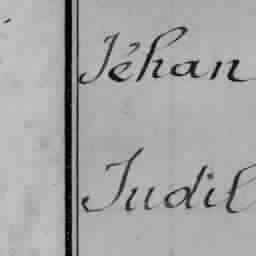 Jéhan
Judil